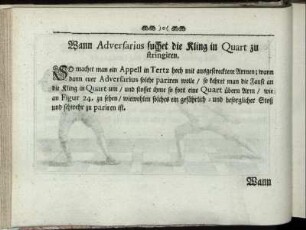 Wann Adversarius suchet die Kling in Quart zu
stringiren.
So machet man ein Appell in Tertz hoch mit ausgestrecktem Armen; wann
dann euer Adversarius solche pariren wolte / so kehret man die Faust an
die Kling in Quart um / und stosset ihme so fort eine Quart übern Arm / wie
an Figur 24. zu sehen / wiewohlen solches ein gefährlich- und besorglicher Stoß
und schwehr zu pariren ist.
Wann